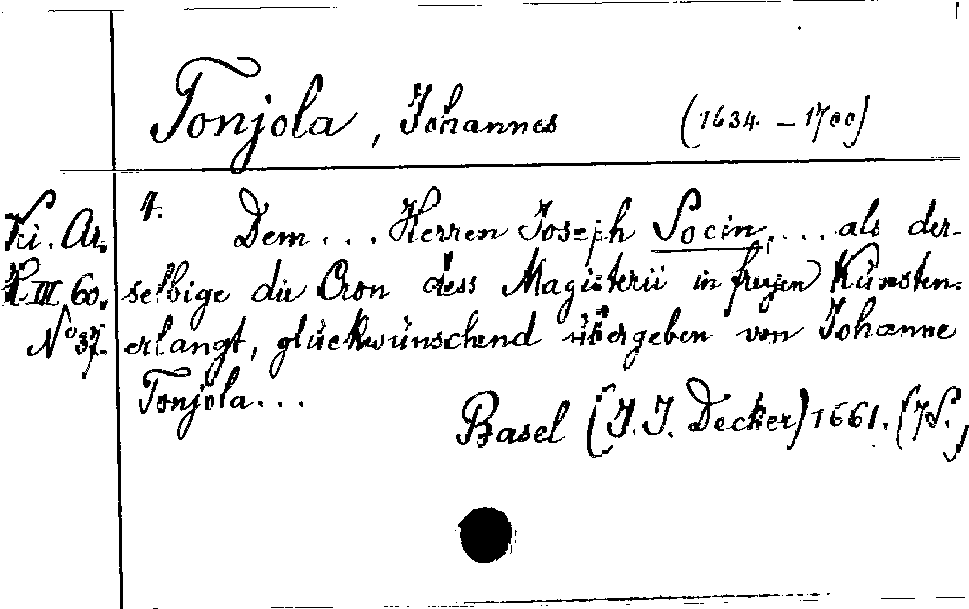 Tonjola, Johannes (1634 - 1700)
Ki. Ar. 1. Dem ... Herren Joseph Socin, ... als der-
H III, 60. selbige die Cron dess Magisterii in freyen Künsten
No 37. erlangt, glückwünschend übergeben von Johanne
Tonjola ...
Basel (J. J. Decker) 1661. (7S.)